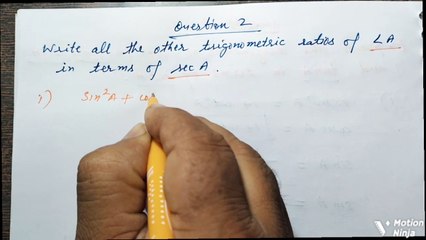 Question 2
Write all the other trigonometric ratios of ∠A
in terms of sec A.
i) Sin²A + co
Motion
Ninja